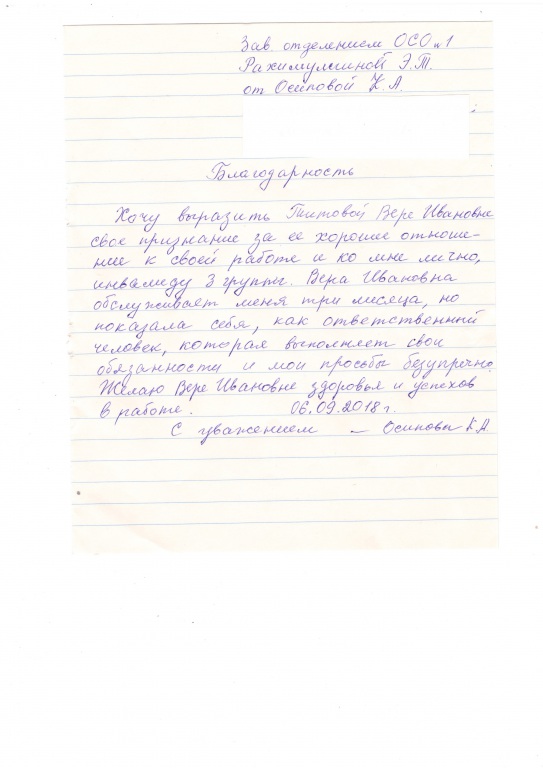 Зав. отделением ОСО №1
Рахимулиной Э.Т.
от Осиповой К.А.
Благодарность
Хочу выразить Титовой Вере Ивановне
свое признание за ее хорошие отноше-
ние к своей работе и ко мне лично,
инвалиду 3 группы. Вера Ивановна
обслуживает меня три месяца, но
показала себя, как ответственный
человек, которая выполняет свои
обязанности и мои просьбы безупречно.
Желаю Вере Ивановне здоровья и успехов
в работе. 06.09.2018 г.
С уважением – Осипова К.А.